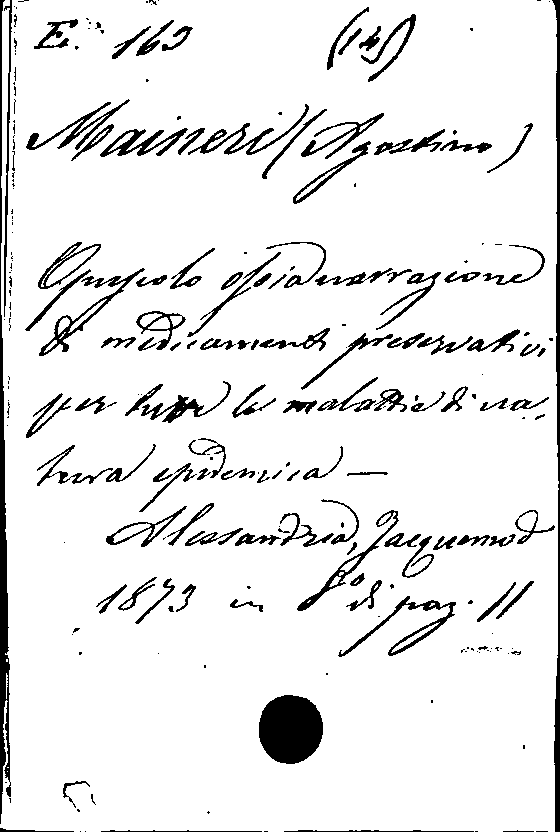 E. 163 (14)
Maineri (Agostino)
Opuscolo ossia narrazione
di medicamenti preservativi
per tutte le malattie di na-
tura epidemica —
Alessandria, Jacquemod
1873 in 8° di pag. 11